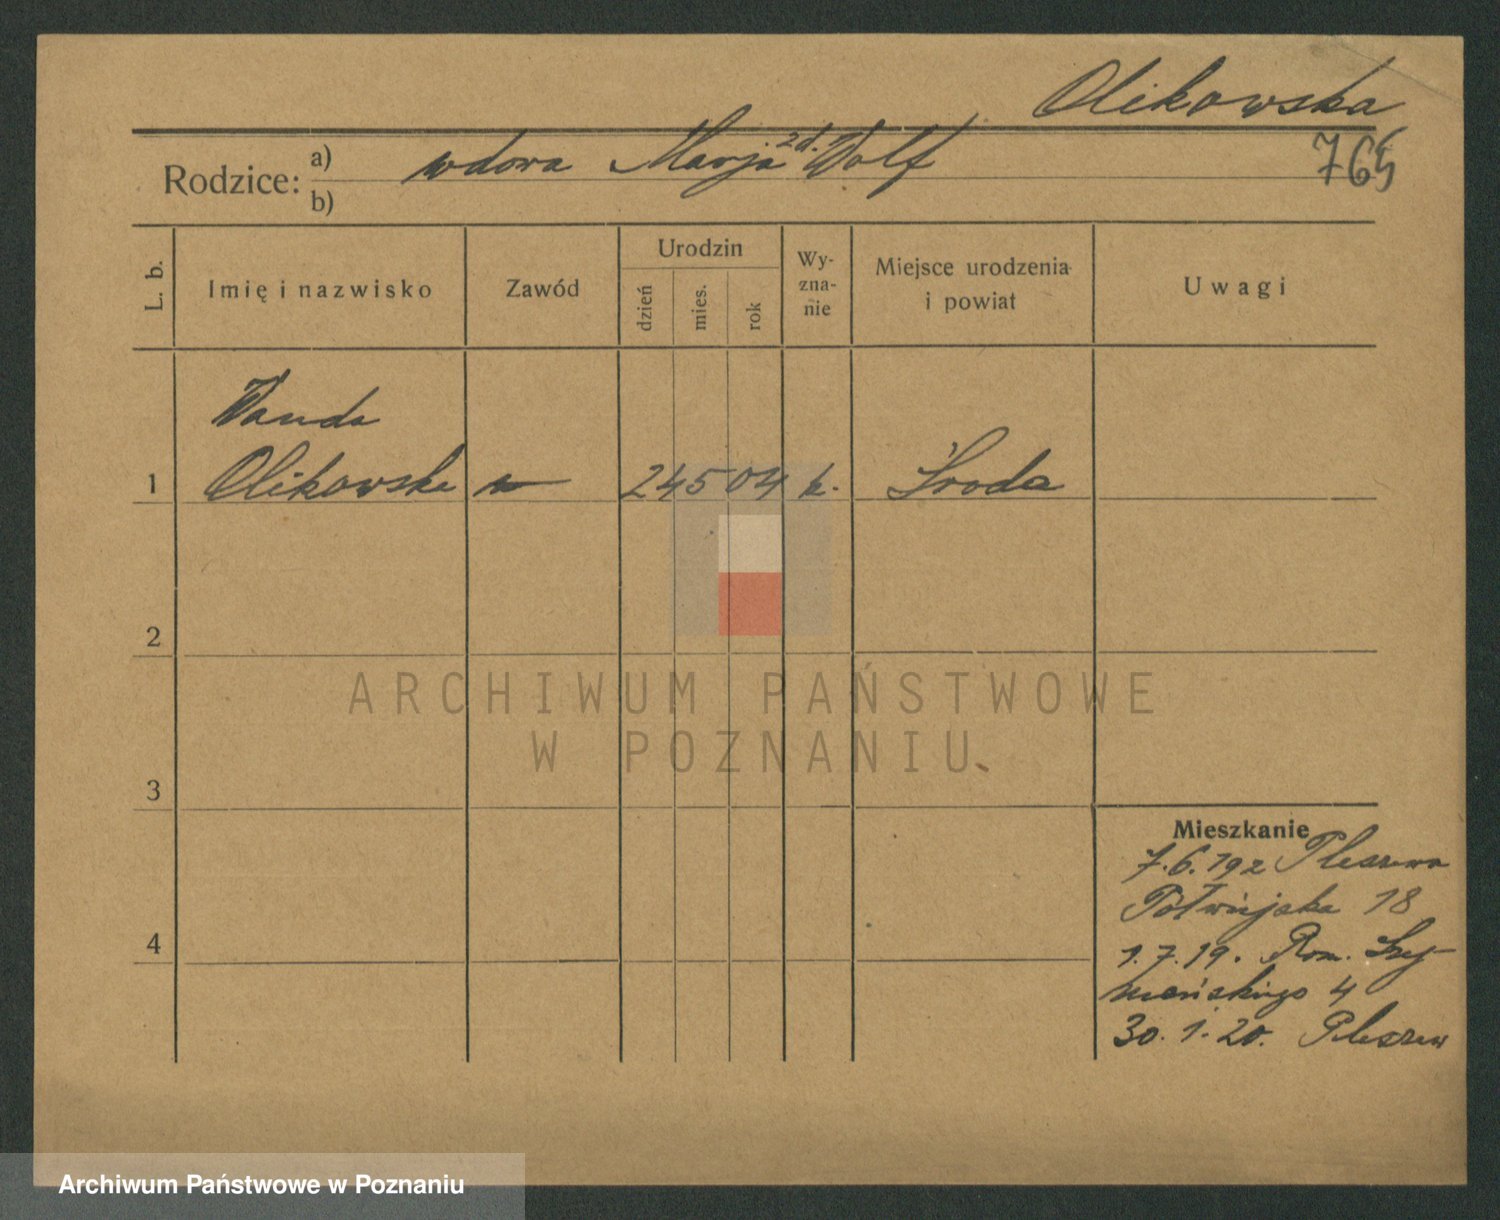 Olikowska
765
Rodzice: a) wdowa Marja 2d. Wolf
b)
L. b.
Imię i nazwisko
Zawód
Urodzin
dzień
mies.
rok
Wy-
zna-
nie
Miejsce urodzenia
i powiat
Uwagi
Wanda
1 Olikowska 24 5 04 k. Środa
2
3
4
Mieszkanie
7.6.192 Pleszewa
18
1.7.19. Rom. Szy-
mańskiego 4
30.1.20. Pleszew
ARCHIWUM PAŃSTWOWE
W POZNANIU
Archiwum Państwowe w Poznaniu